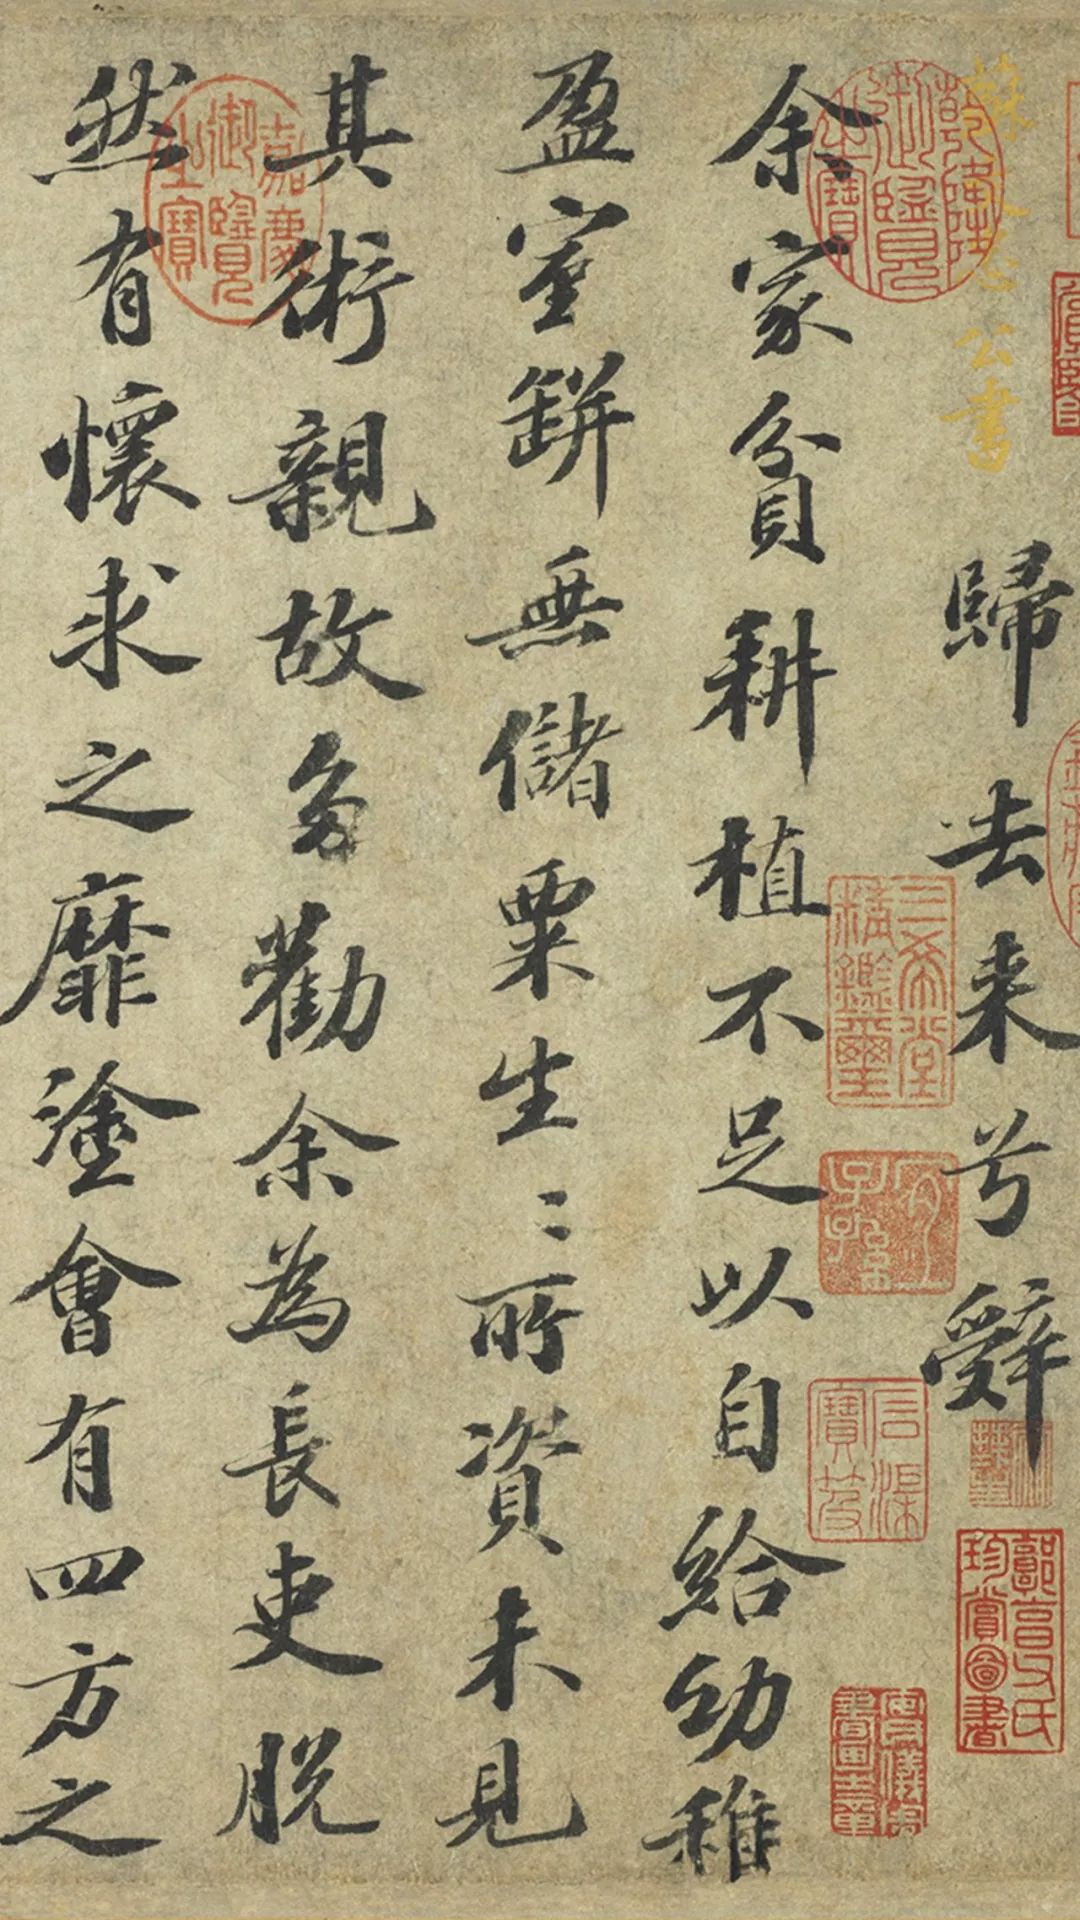 蘇文忠公書
歸去来兮辭
余家貧耕植不足以自給幼稚
盈室缾無儲粟生〻所資未見
其術親故多勸余為長吏脱
然有懷求之靡塗會有四方之
乾隆御覽之寶
嘉慶御覽之寶
三希堂精鑑璽
宜子孫
石渠寶笈
郭官父氏珍賞圖書